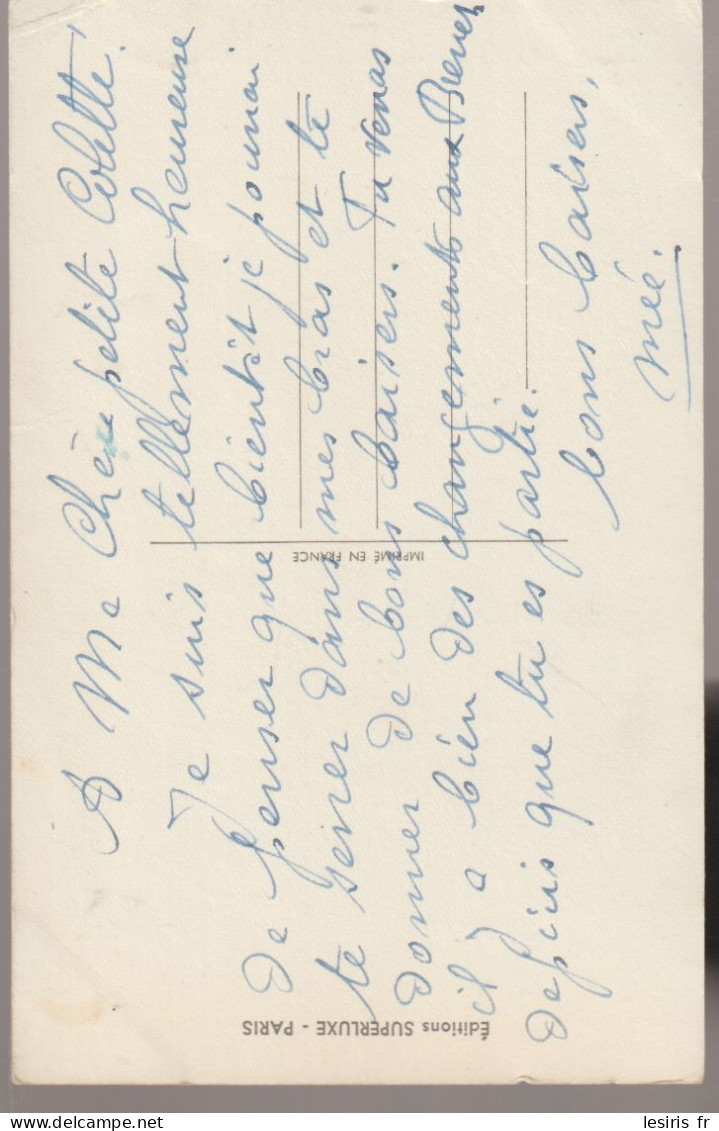 A Ma Chère petite Colette !
Je suis tellement heureuse
de penser que bientôt je pourrai
te serrer dans mes bras et te
donner de bons baisers. Tu verras
il y a bien des changements aux
depuis que tu es partie.
bons baisers,
Mée.
IMPRIMÉ EN FRANCE
Éditions SUPERLUXE - PARIS
lesiris fr